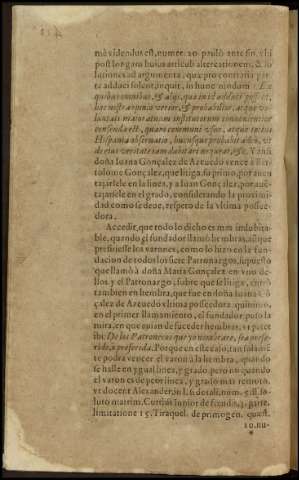 mà videndus est, numer. 20. paulò ante fin. vbi
post longam huius articuli altercationem, & so
lutiones ad argumenta, quæ pro contraria par
te adduci solent inquit, in hunc modum: Ex
quibus omnibus, & alijs, quæ
hæc nostra opinio verior, & probabilior, atque vo
luntati maioratuum institutorum convenientior
censenda est, quam communi vsu, atque totius
Hispaniæ observatio,
de eius veritate iam dubitari nequeat, &c. Y ansi
doña Iuana Gonçalez de Azeuedo vence à Ber
tolome Gonçalez, que litiga, su primo, por auen
tajarsele en la linea, y a Iuan Gonçalez, por auē
tajarsele en el grado, considerando la proximi
dad como se deue, respeto de la vltima posse-
dora.
Accedit, que todo lo dicho es mas indubita-
ble, quando el fundador llamò hembras, aunque
prefiriesse los varones, como lo hizo en la fun-
dacion de todos los siete Patronazgos, supuesto
que llamò à doña Maria Gonçalez en vno de-
llos y el Patronazgo, sobre que se litiga, entrò
tambien en hembra, que fue en doña Iuana Gō
çalez de Azeuedo vltima posseedora: quinimo,
en el primer llamamiento, el fundador, puso la
mira, en que auian de suceder hembras, vt patet
ibi: De los Patronetes que yo nombrare, sea prefe-
rido, à preferida. Porque en este caso, tan solamē-
te podrà vencer el varon à la hembra, quando
se halle en ygual linea, y grado, pero no quando
el varon es de peor linea, y grado mas remoto,
vt docent Alexander, in l. si dotali, num. 5. ff. so-
luto matrim. Curtius Iunior de feudis, 3. parte,
limitatione 15. Tiraquel. de primogen. quæst.
10. nu-